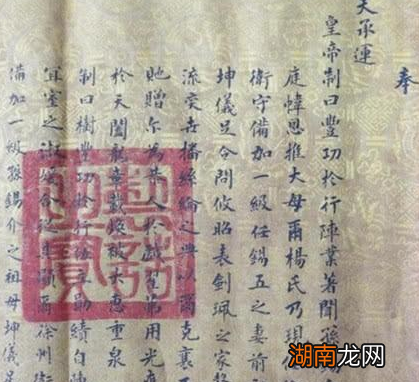 奉
天承運
皇帝制曰豐功於行陣業著聞孫
庭幃恩推大母爾楊氏乃現
衛守備加一級任錫五之妻前
坤儀足合問攸昭表劍珮之家
流奕世播絲綸之典以
貤贈爾為恭人於戲用光
於天閶龍章載煥被大惠重泉
制曰樹豐功於行勛績自
宜室之淑合從其爾徐州衛
備加一級孫錫介之祖母坤儀足
湖南龙网